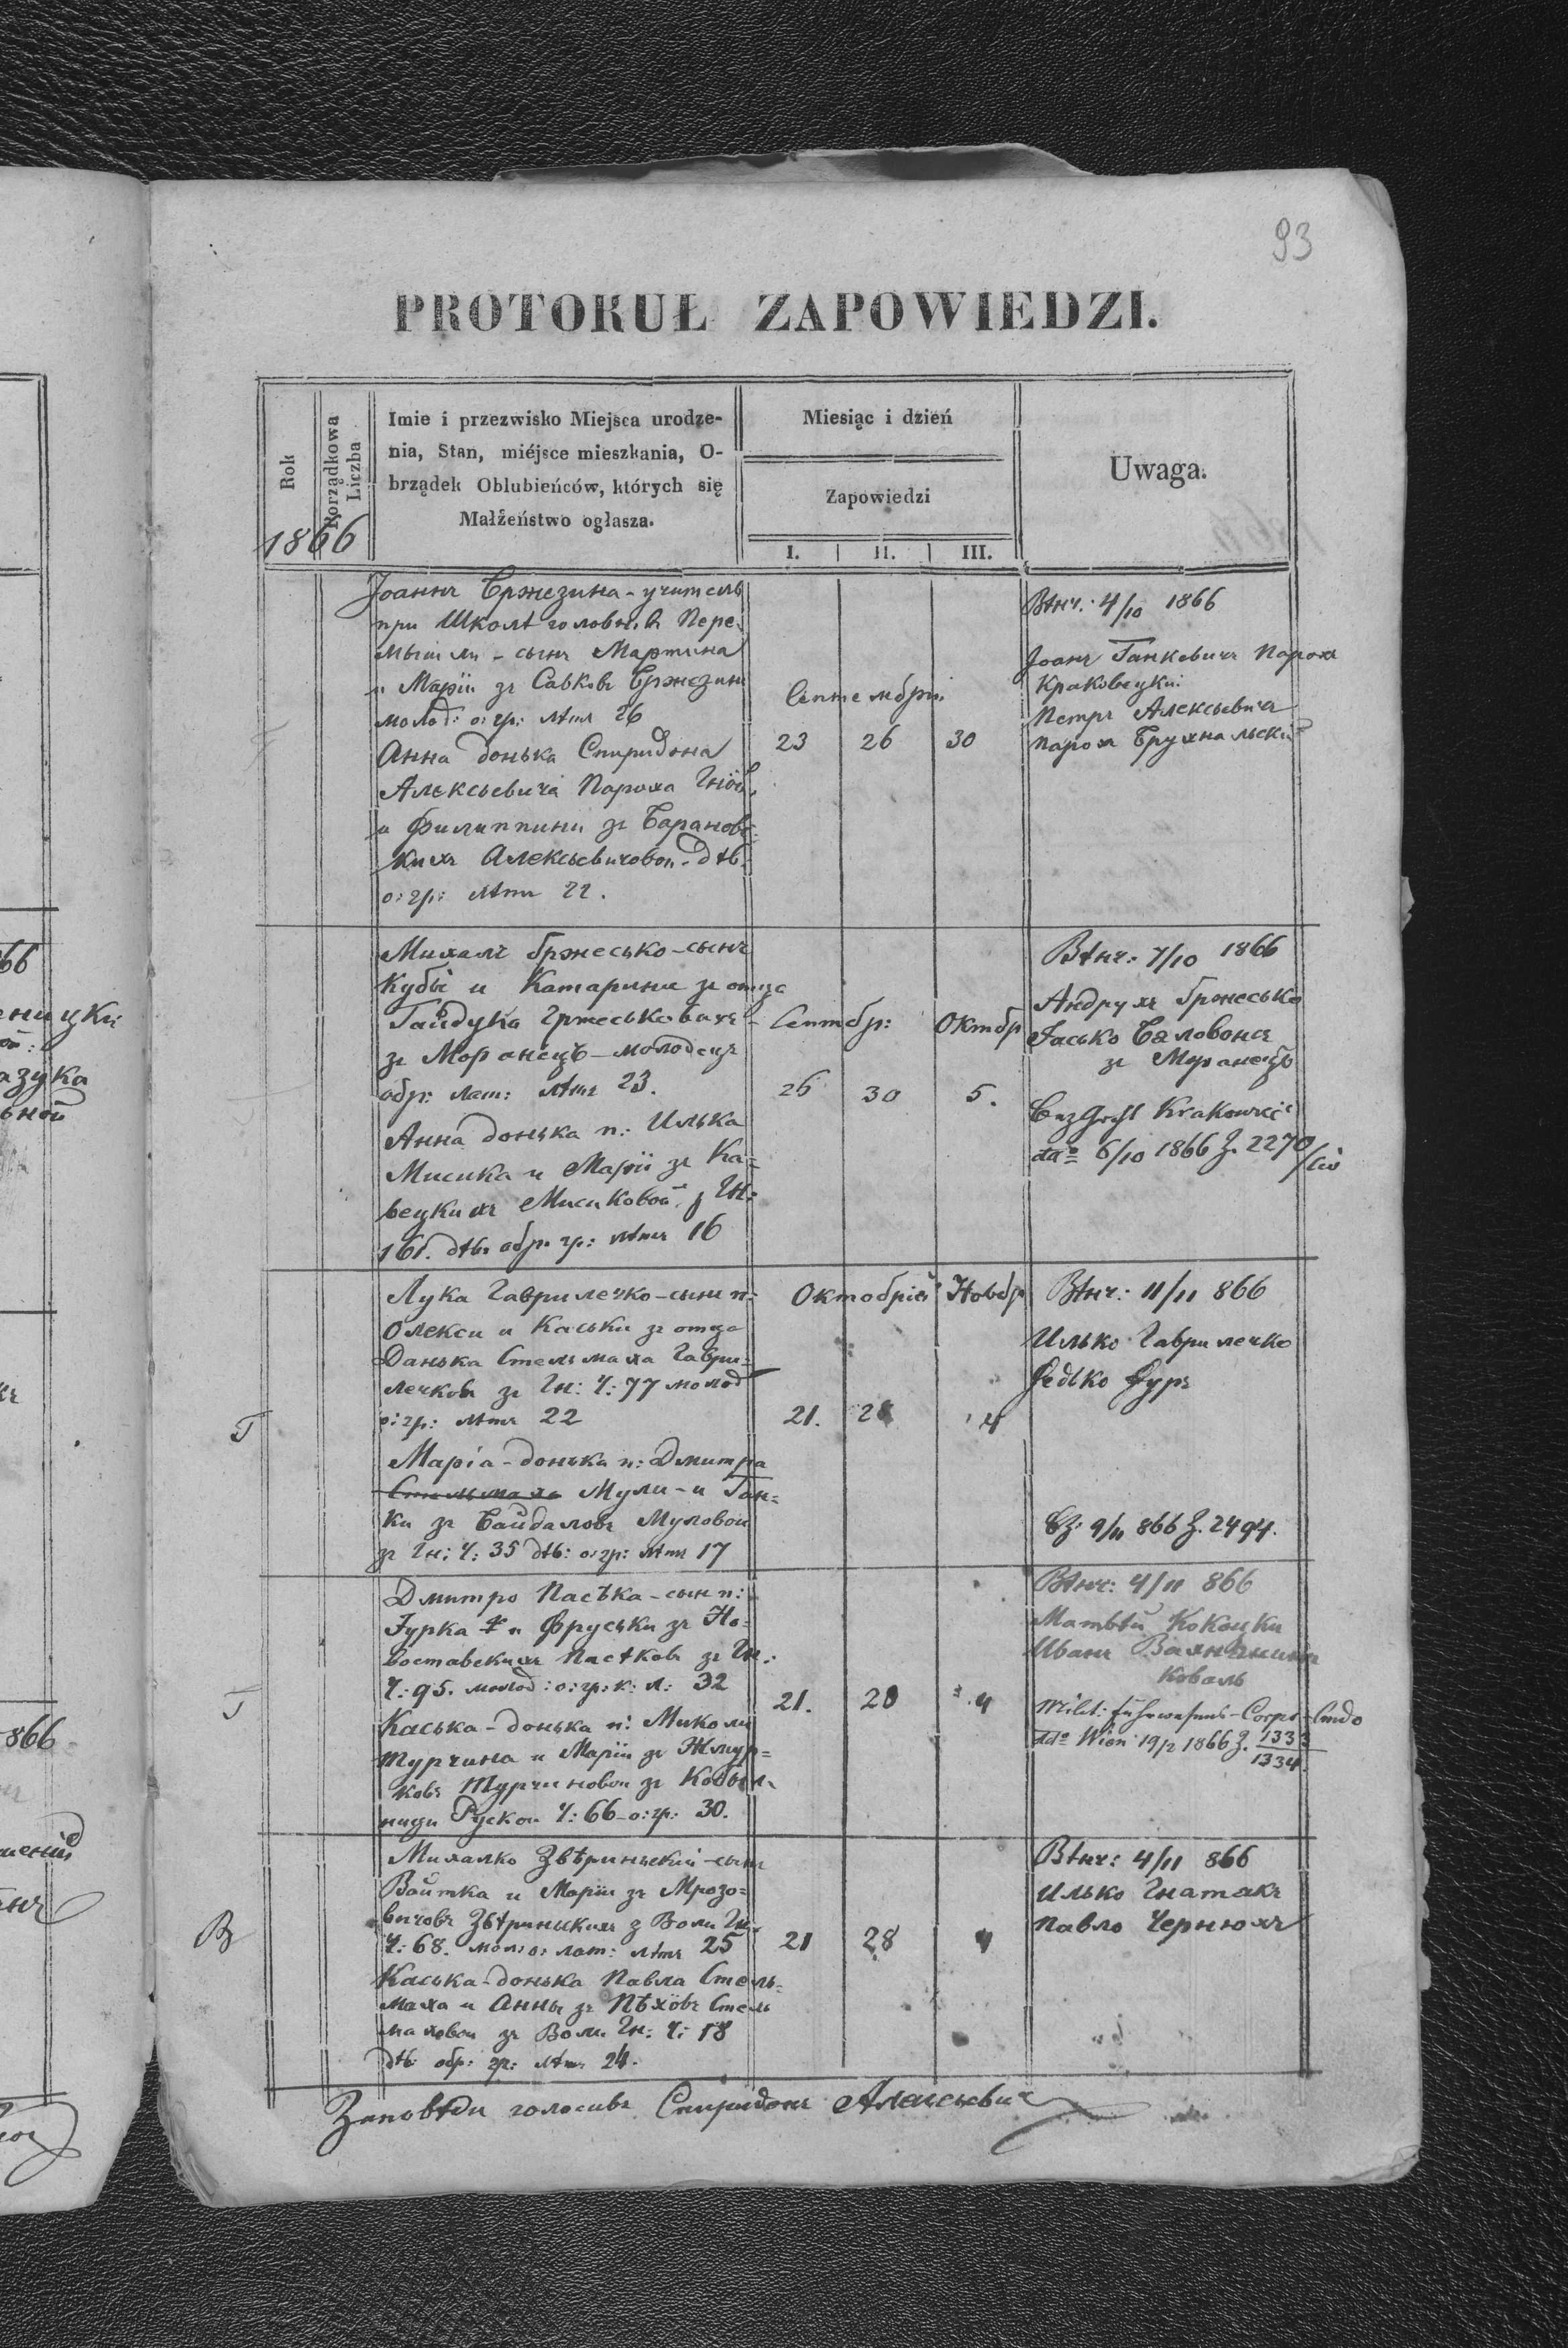 93
PROTOKUŁ ZAPOWIEDZI.
Rok
Porządkowa
Liczba
Imie i przezwisko Miejsca urodze-
nia, Stan, miéjsce mieszkania, O-
brządek Oblubieńców, których się
Małżeństwo ogłasza.
Miesiąc i dzień
Zapowiedzi
I. II. III.
Uwaga.
1866
Іоаннъ Бржезина - учитель
при Школѣ головн. въ Пере-
мышли - сынъ Мартина
и Маріи зъ Савковъ Бржезин
молод: о: гр: лѣтъ 26
Анна донька Спиридона
Алексѣевича Пароха
и Филиппини зъ Барановс-
кихъ Алексѣевичовои - дѣв.
о: гр: лѣтъ 22.
Септемврія
23 26 30
Вѣнч: 4/10 1866
Іоанъ Ганкевичъ Парохъ
Краковецкій
Петръ Алексѣевичъ
парохъ Брухнальскій
Михалъ Гржесько - сынъ
Кубы и Катарини зъ отца
Гайдука Гржеськовыхъ -
зъ Моранецъ - молодецъ
обр: лат: лѣтъ 23.
Анна донька п: Илька
Мисика и Маріи зъ Ка-
вецкихъ Мисиковои з Гн:
161. дѣв. обр. гр: лѣтъ 16
Септбр: Октбр
26 30 5.
Вѣнч: 7/10 1866
Андрухъ Гржесько
Яцько Баловонсъ
зъ Моранецъ
BezGericht Krakowiec
ddo 6/10 1866 Z. 2270/civ
Лука Гаврилечко - сынъ п:
Олекси и Каськи зъ отца
Данька Стельмаха Гаври-
лечковъ зъ Гн: Ч: 77 молод
о: гр: лѣтъ 22
Маріа - донька п: Дмитра
Стельмаха Мули - и Ган-
ки зъ Байдаловъ Муловои
зъ Гн: Ч: 35 дѣв: о: гр: лѣтъ 17
Октобрія Новбр
21. 28 4
Вѣнч: 11/11 866
Илько Гаврилечко
Федько Фуръ
BZ: 9/11 866 Z. 2494.
Т
Дмитро Пасѣка - сынъ п:
Гурка и Фруськи зъ Но-
воставскихъ Пасѣковъ зъ Гн:
Ч: 95. молод: о: гр: к: л: 32
Каська - донька п: Миколи
Турчина и Маріи зъ Жмур-
ковъ Турчиновои зъ Кобыл-
ници Рускои Ч: 66 - о: гр: 30.
21. 28 4
Вѣнч: 4/11 866
Матвѣй Кокоцки
Иванъ
Коваль
Milit: Fuhrwesens-Corps-Cmdo
ddo Wien 19/2 1866 Z. 1333
1334.
Т
Михалко Звѣринскій - сынъ
Войтка и Маріи зъ Мрозо-
вичовъ Звѣринскихъ з Воли Гн:
Ч: 68. мол: о: лат: лѣтъ 25
Каська - донька Павла Стель-
маха и Анны зъ Пѣховъ Стель
маховои зъ Воли Гн: Ч: 18
дѣв: обр: гр: лѣтъ 24.
21 28 4
Вѣнч: 4/11 866
Илько Гнатакъ
Павло Чернюхъ
В
Заповѣди голосивъ Спиридонъ Алексѣевич